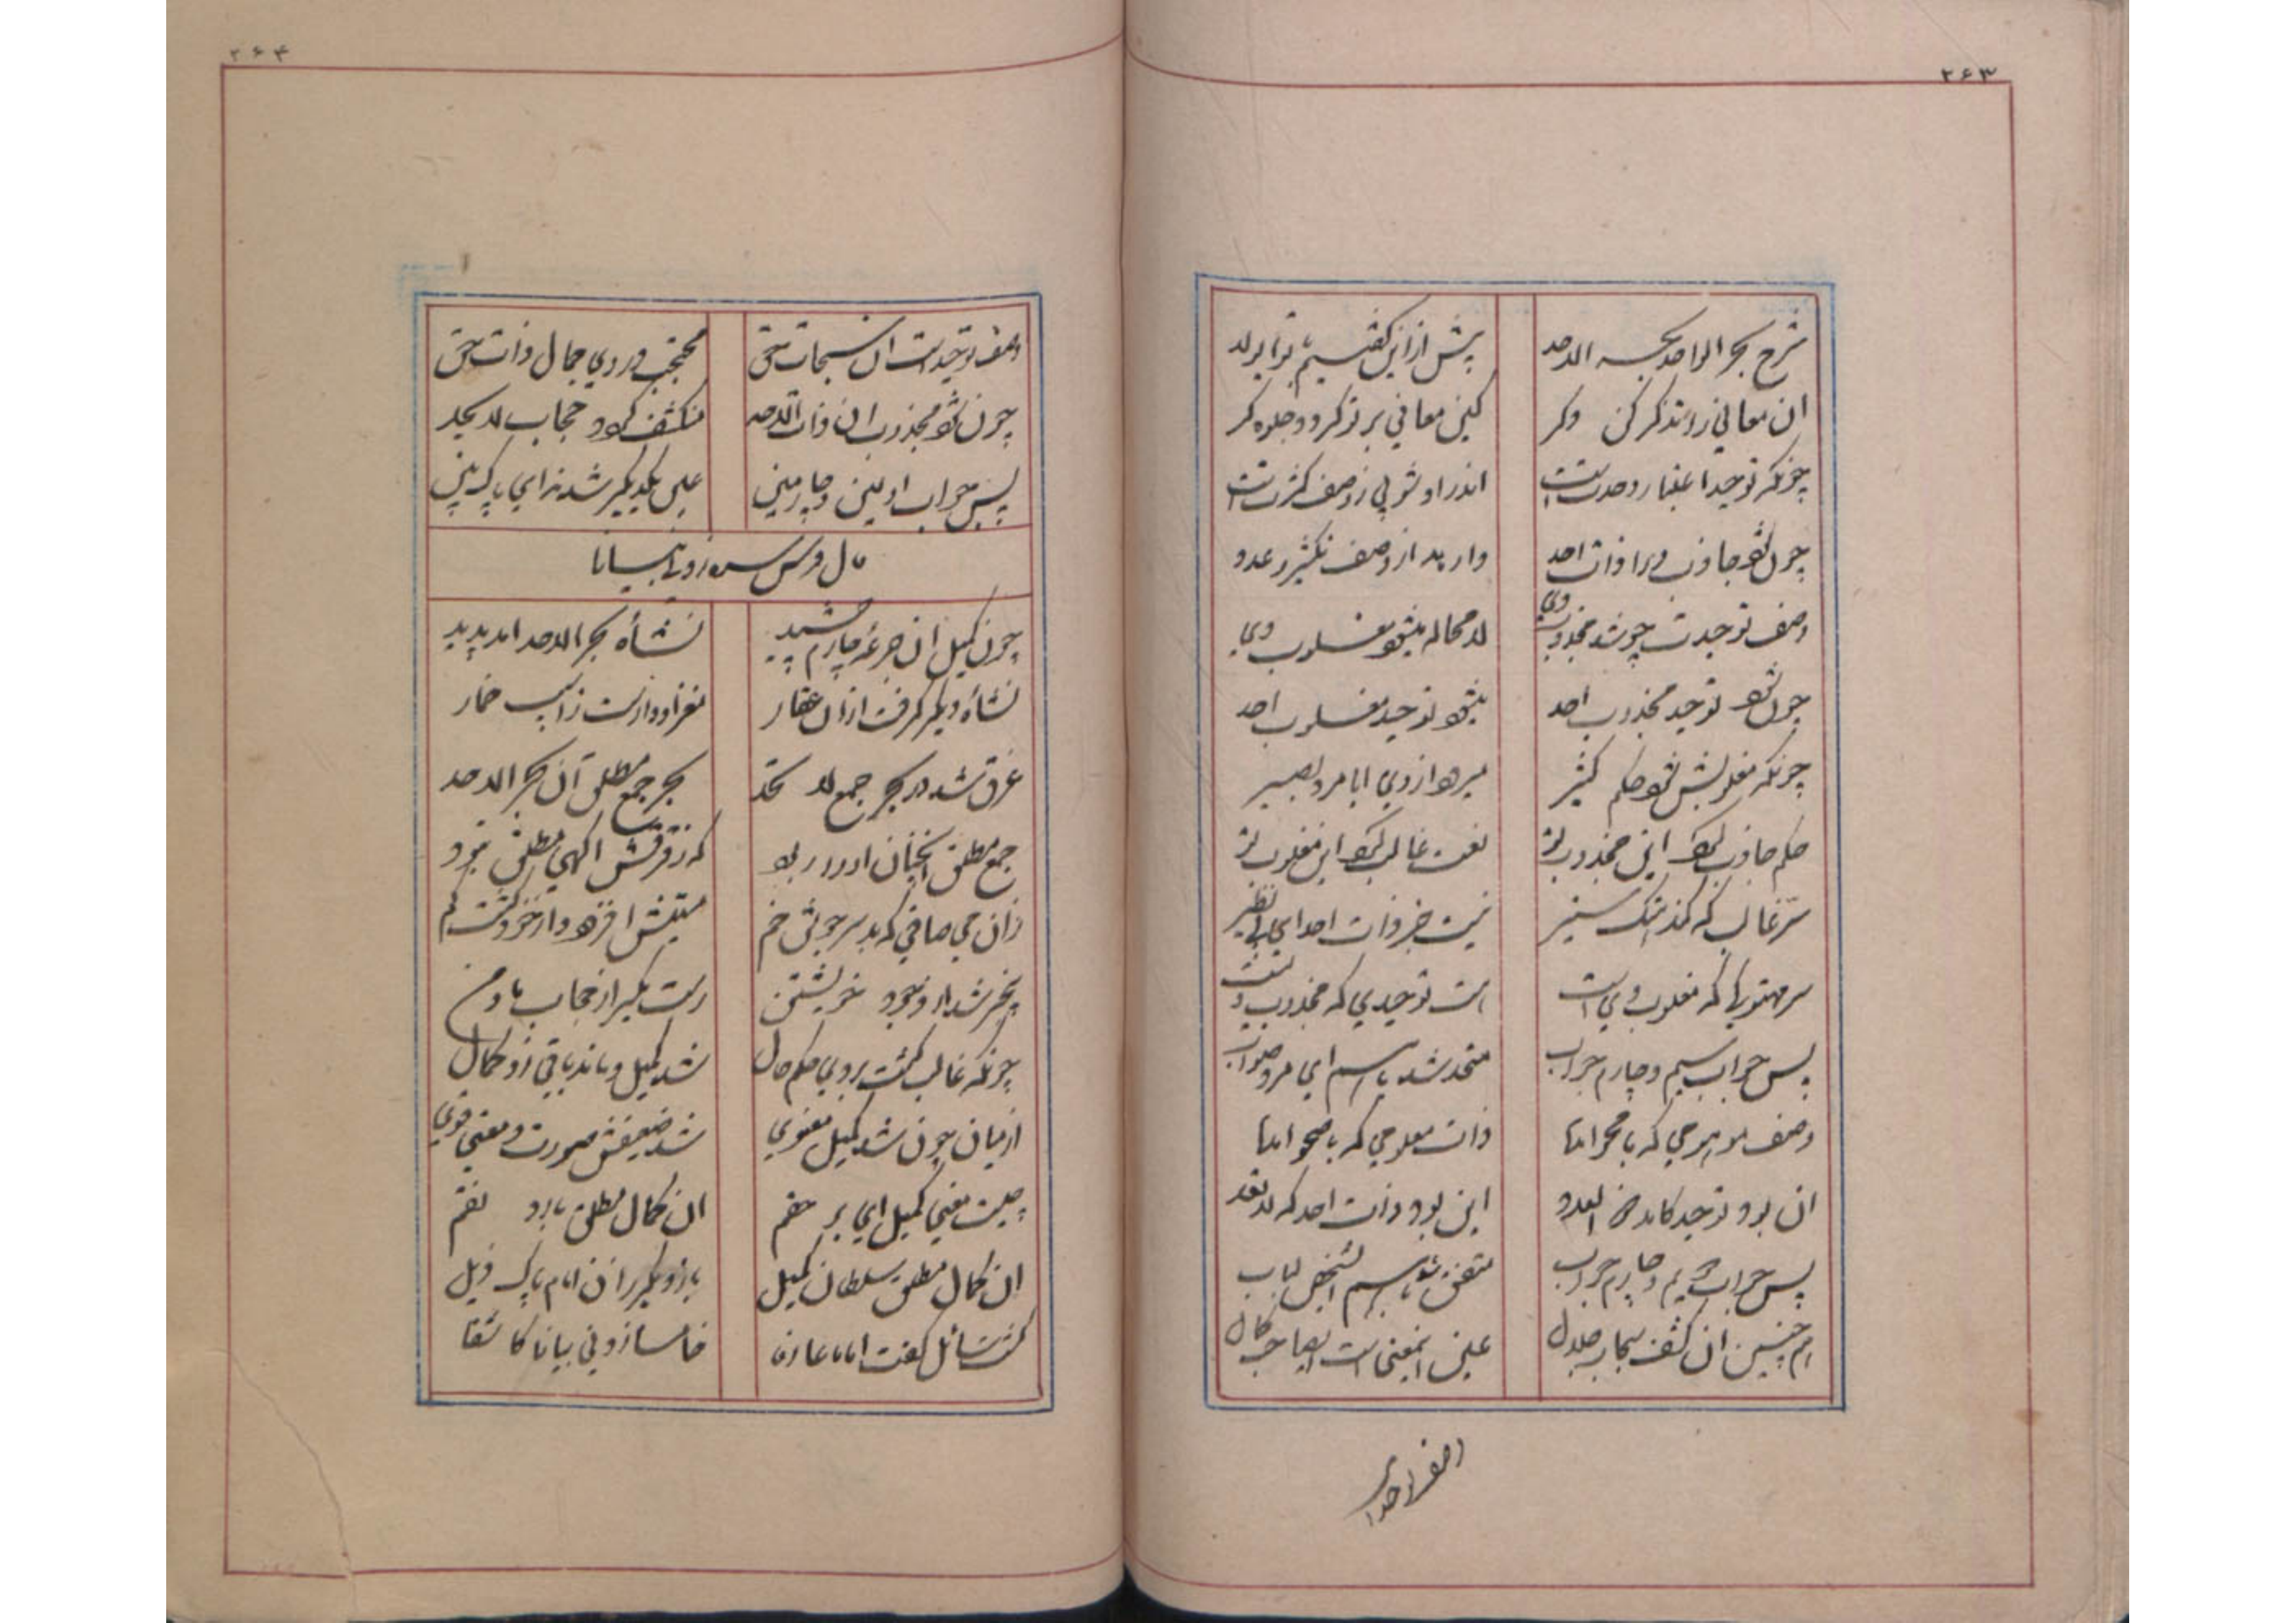 ۲۶۳
شرح بحر الواحد بحر الاحد پیش از این گفتیم
ان معانی را تذکر کن دگر کین معانی بر تو کرده جلوه گر
چونکه توحید اعتبار وحدتست اندر او شوبی ز وصف کثرتست
چون شود جاذب ورا ذات احد وارهد از وصف تکثیر و عدد
وصف توحیدت چو شد مجذوب وی لامحاله میشود مغلوب وی
چون شود توحید مجذوب احد میشود توحید مغلوب احد
چونکه مغلوبش شود حکم کثیر میرود از وی ایا مرد بصیر
حکم جاذب گیرد این مجذوب تو نعت غالب گیرد این مغلوب تو
سر غالب که کند هتک ستیر نیست جز ذات احد ای بی نظیر
سر مهتوکها که مغلوب وی است هست توحیدی که مجذوب
پس جواب سیم و چارم جواب متحد شد با هم ای مرد صواب
وصف موهومی که با محو اندا ذات معلومی که با صحو اندا
ان بود توحید کامد العدد این بود ذات احد که لا تعد
پس جواب دویم و چارم جواب متفق شد با هم لباب
هم چنین ان کشف سبحات جلال عین اینمعنی است
وصف توحید
۲۶۴
وصف توحیدست ان سبحات حق محتجب در وی جمال ذات حق
چون شود مجذوب ان ذات الاحد منکشف گردد حجاب لا یحد
پس جواب اولین و چارمین عین یکدیگر شدند ای پاک بین
چون کمیل ان جرعه چارم چشید نشأه بحر الاحد امد پدید
نشأه دیگر گرفت از ان عقار مغز او وارست ز اسیب خمار
غرق شد در بحر جمع لا تحد بحر جمع مطلق آن بحر الاحد
جمع مطلق انچنان او را ربود که ز فرقش اگهی مطلق نبود
زان می صافی که بد سرجوش خم مستیش افزود و از خود گشت گم
بیخبر شد از وجود خویشتن رست یکسر از حجاب ما و من
چونکه غالب گشت بر وی حکم حال شد کمیل و ماند باقی زو کمال
از میان چون شد کمیل معنوی شد ضعیفش صورت و معنی قوی
چیست معنی کمیل ای بر حقم ان کمال مطلق
ان کمال مطلق سلطان کمیل بار دیگر زان امام پاک ذیل
گشت سائل گفت اماما عارفا خامسا زدنی بیانا کاشفا